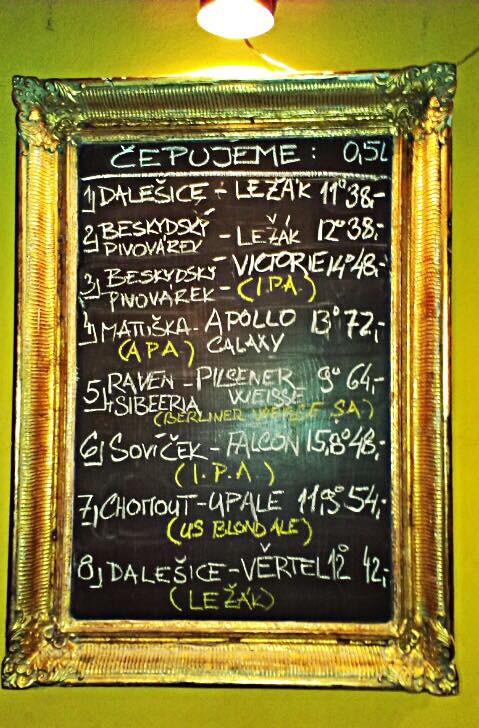 ČEPUJEME: 0,5L
1) DALEŠICE - LEŽÁK 11° 38,-
2) BESKYDSKÝ PIVOVÁREK - LEŽÁK 12° 38,-
3) BESKYDSKÝ PIVOVÁREK - VICTORIE 14° 48,-
(I.P.A.)
4) MATUŠKA - APOLLO GALAXY 13° 72,-
(APA)
5) RAVEN + SIBEERIA - PILSENER WEISSE 9° 64,-
(BERLINER WEISSE SA)
6) SOVÍČEK - FALCON 15,8° 48,-
(I.P.A.)
7) CHOMOUT - UPALE 11,9° 54,-
(US BLOND ALE)
8) DALEŠICE - VĚRTEL 12° 42,-
(LEŽÁK)